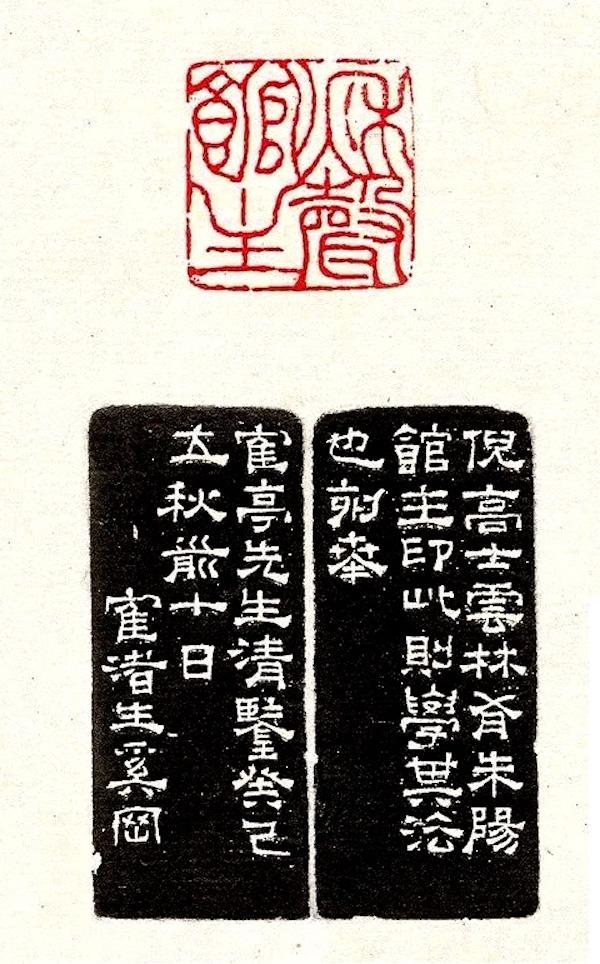 秋聲
館主
倪高士雲林有朱陽
館主印此則學其法
也奉
寉亭先生清鑒癸已
立秋前十日
寉渚生奚岡